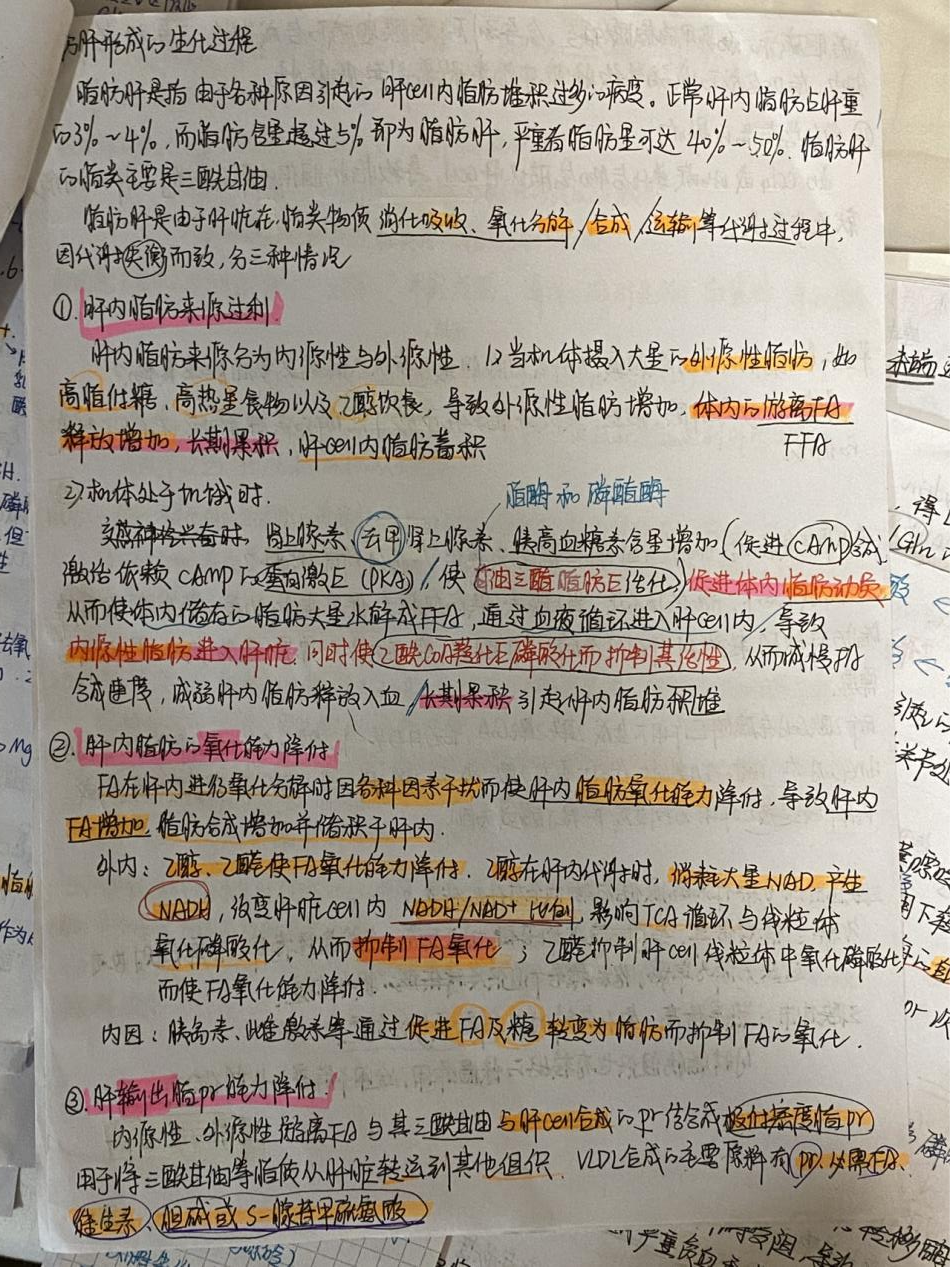 肝形成的生化过程
脂肪肝是指由于各种原因引起的肝cell内脂肪堆积过多的病变。正常肝内脂肪占肝重
的3%~4%,而脂肪含量超过5%即为脂肪肝,严重者脂肪量可达40%~50%.脂肪肝
的脂类主要是三酰甘油.
脂肪肝是由于肝脏在脂类物质消化吸收、氧化分解/合成/运输等代谢过程中,
因代谢失衡而致,分三种情况
①.肝内脂肪来源过剩
肝内脂肪来源分为内源性与外源性. 1>当机体摄入大量的外源性脂肪,如
高脂低糖、高热量食物以及乙醇饮食,导致外源性脂肪增加,体内的游离FA
释放增加,长期累积,肝cell内脂肪蓄积
FFA
2>机体处于饥饿时.
脂酶和磷酯酶
交感神经兴奋时,肾上腺素、去甲肾上腺素、胰高血糖素含量增加(促进cAmp合成
激活依赖cAMP的蛋白激E(PKA)/使甘油三酯脂肪E活化)促进体内脂肪动员
从而使体内储存的脂肪大量水解成FFA,通过血液循环进入肝cell内/导致
内源性脂肪进入肝脏.同时使乙酰CoA羧化E磷酸化而抑制其活性,从而减慢FA
合成速度,减弱肝内脂肪释放入血/长期累积引起肝内脂肪积堆
②.肝内脂肪的氧化能力降低
FA在肝内进行氧化分解时因各种因素干扰而使肝内脂肪氧化能力降低,导致肝内
FA增加,脂肪合成增加并储积于肝内.
外因:乙醇、乙醛使FA氧化能力降低.乙醇在肝内代谢时,消耗大量NAD,产生
NADH,改变肝脏cell内NADH/NAD+比例,影响TCA循环与线粒体
氧化磷酸化,从而抑制FA氧化;乙醛抑制肝cell线粒体中氧化磷酸化
而使FA氧化能力降低.
内因:胰岛素、雌激素等通过促进FA及糖转变为脂肪而抑制FA的氧化.
③.肝输出脂pr能力降低.
内源性、外源性游离FA与其三酰甘油与肝cell合成的pr结合成极低密度脂pr
用于将三酰甘油等脂质从肝脏转运到其他组织. VLDL合成的主要原料有pr、必需FA、
维生素、胆碱或S-腺苷甲硫氨酸